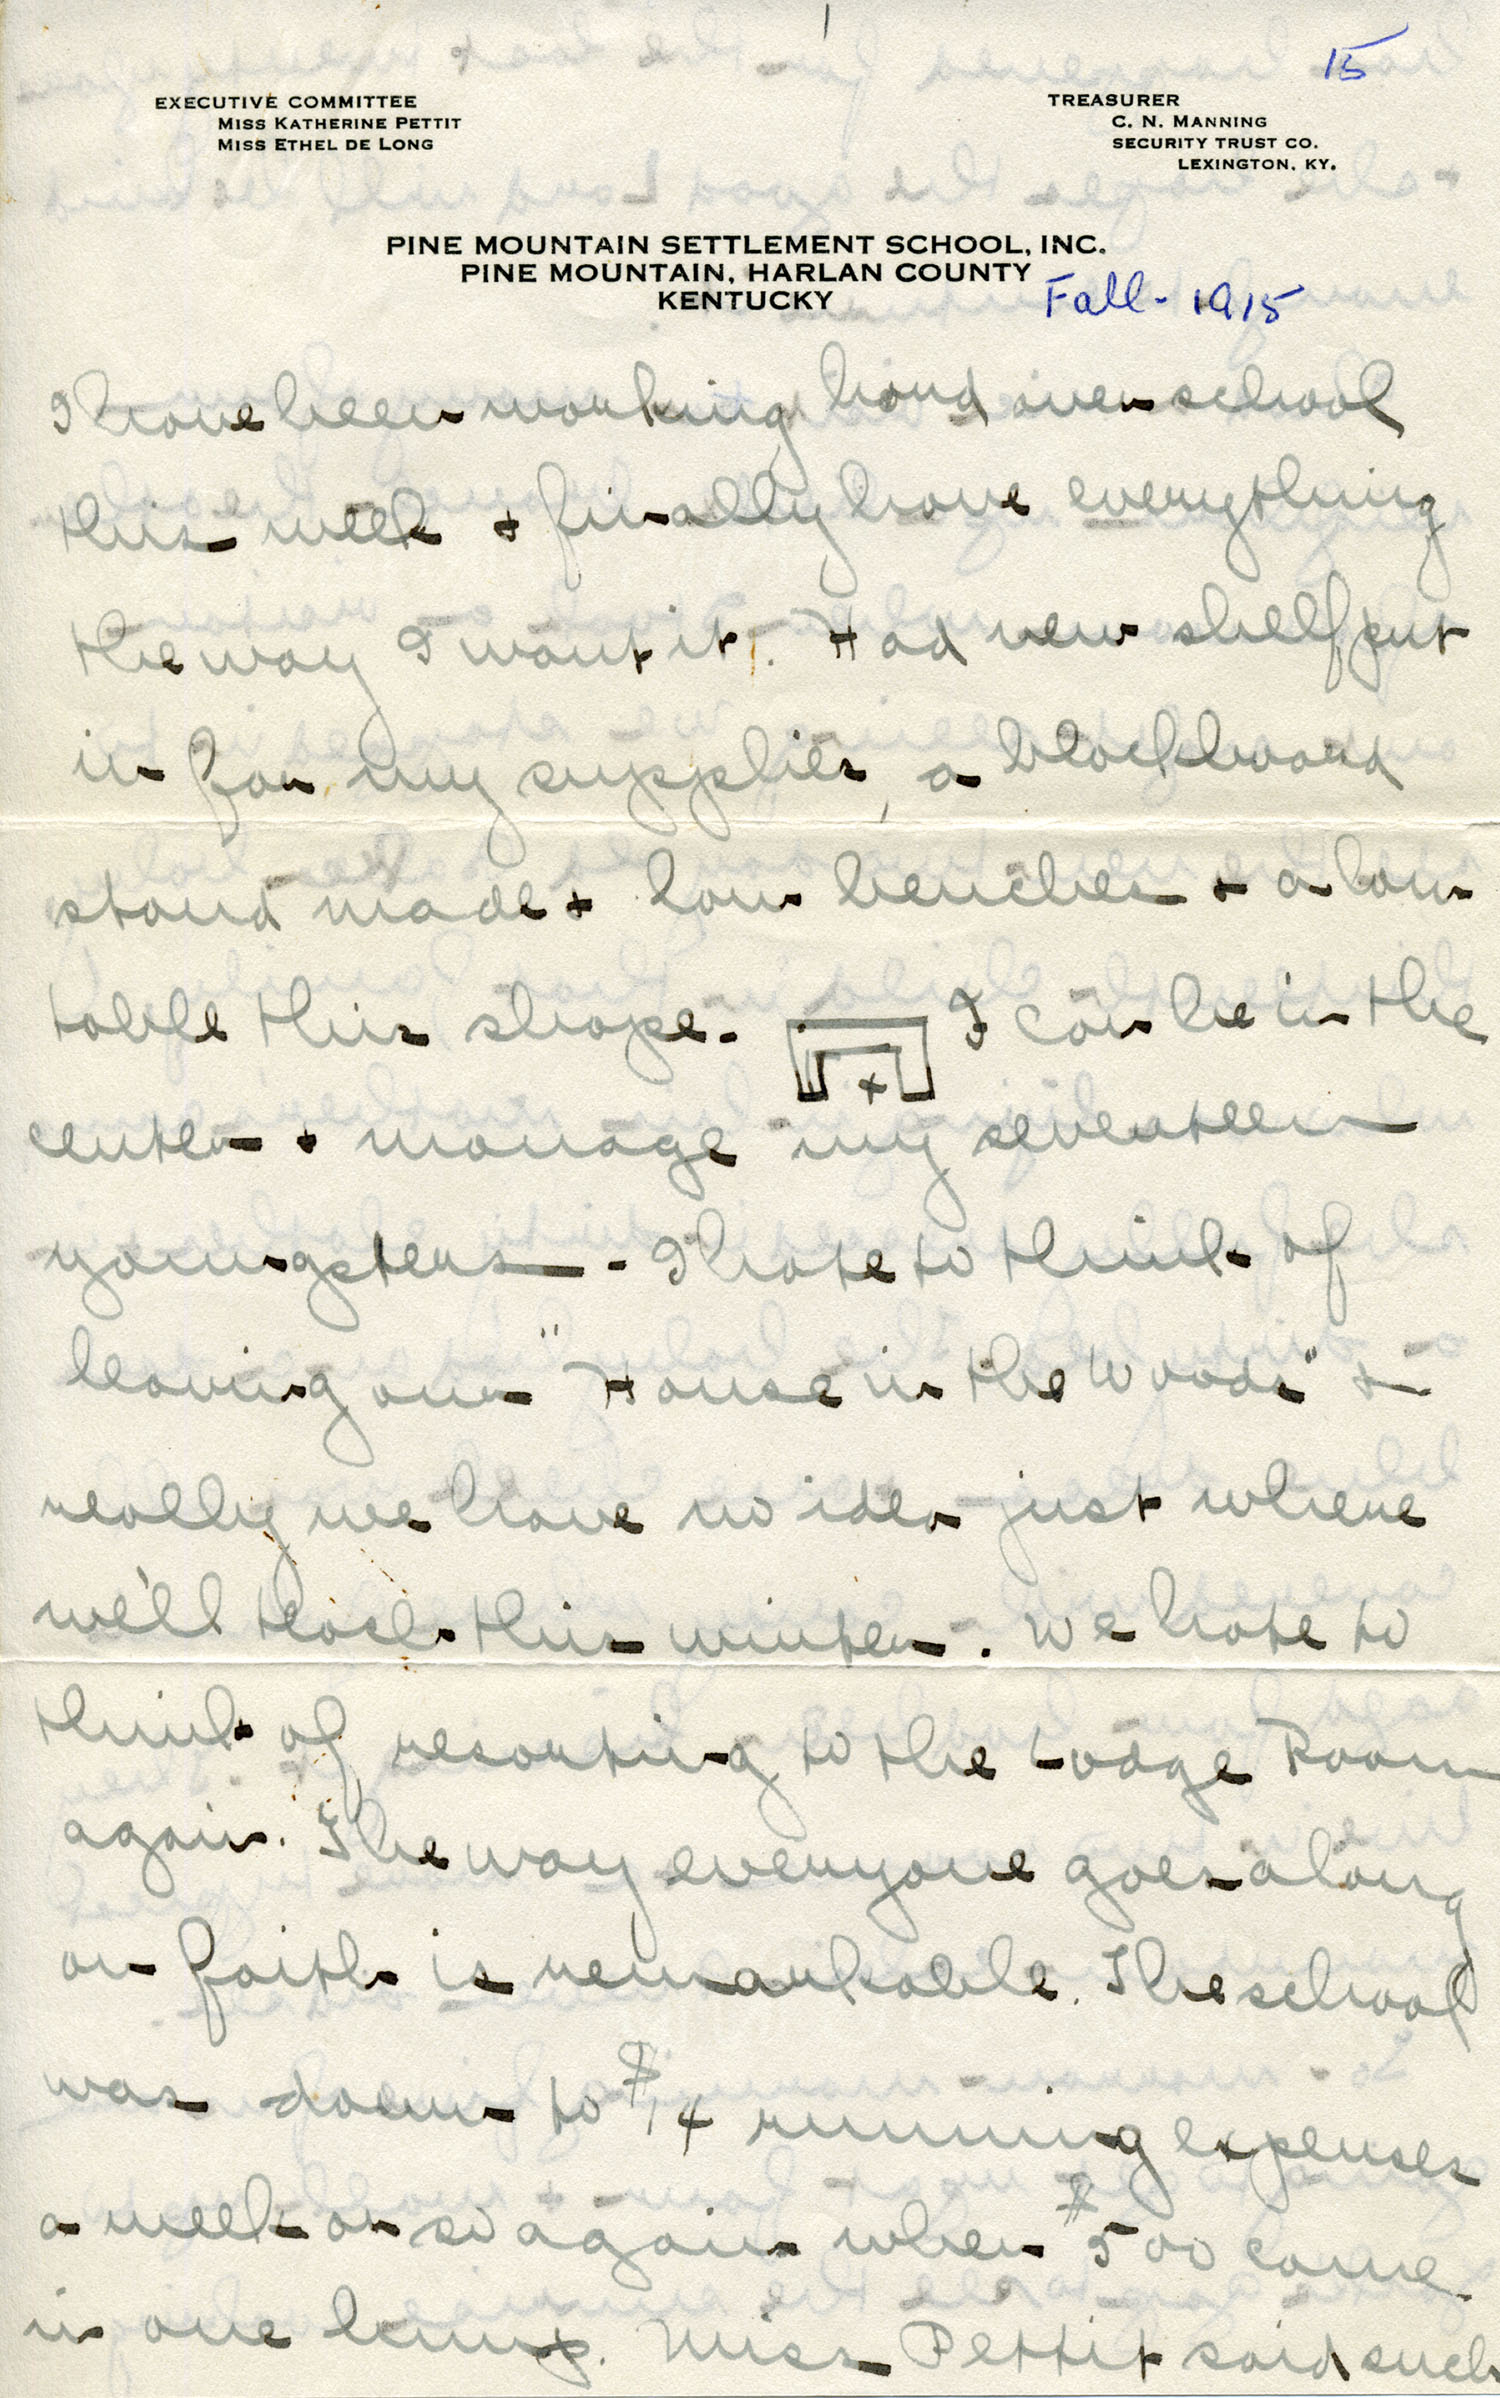 15
EXECUTIVE COMMITTEE
MISS KATHERINE PETTIT
MISS ETHEL DE LONG
TREASURER
C. N. MANNING
SECURITY TRUST CO.
LEXINGTON, KY.
PINE MOUNTAIN SETTLEMENT SCHOOL, INC.
PINE MOUNTAIN, HARLAN COUNTY
KENTUCKY
Fall - 1915
I have been working hard over school
this week + finally have everything
the way I want it. Had new shelf put
in for my supplies, a blackboard
stand made + low benches + a low
table this shape - x I can be in the
center + manage my seventeen
youngsters - I hate to think of
leaving our "House in the Woods" +
really we have no idea just where
we'll teach this winter. We hate to
think of resorting to the Lodge Room
again. The way everyone goes along
on faith is remarkable. The school
was down to $14 running expenses
a week or so again when $500 came
in one lump. Miss Pettit said such